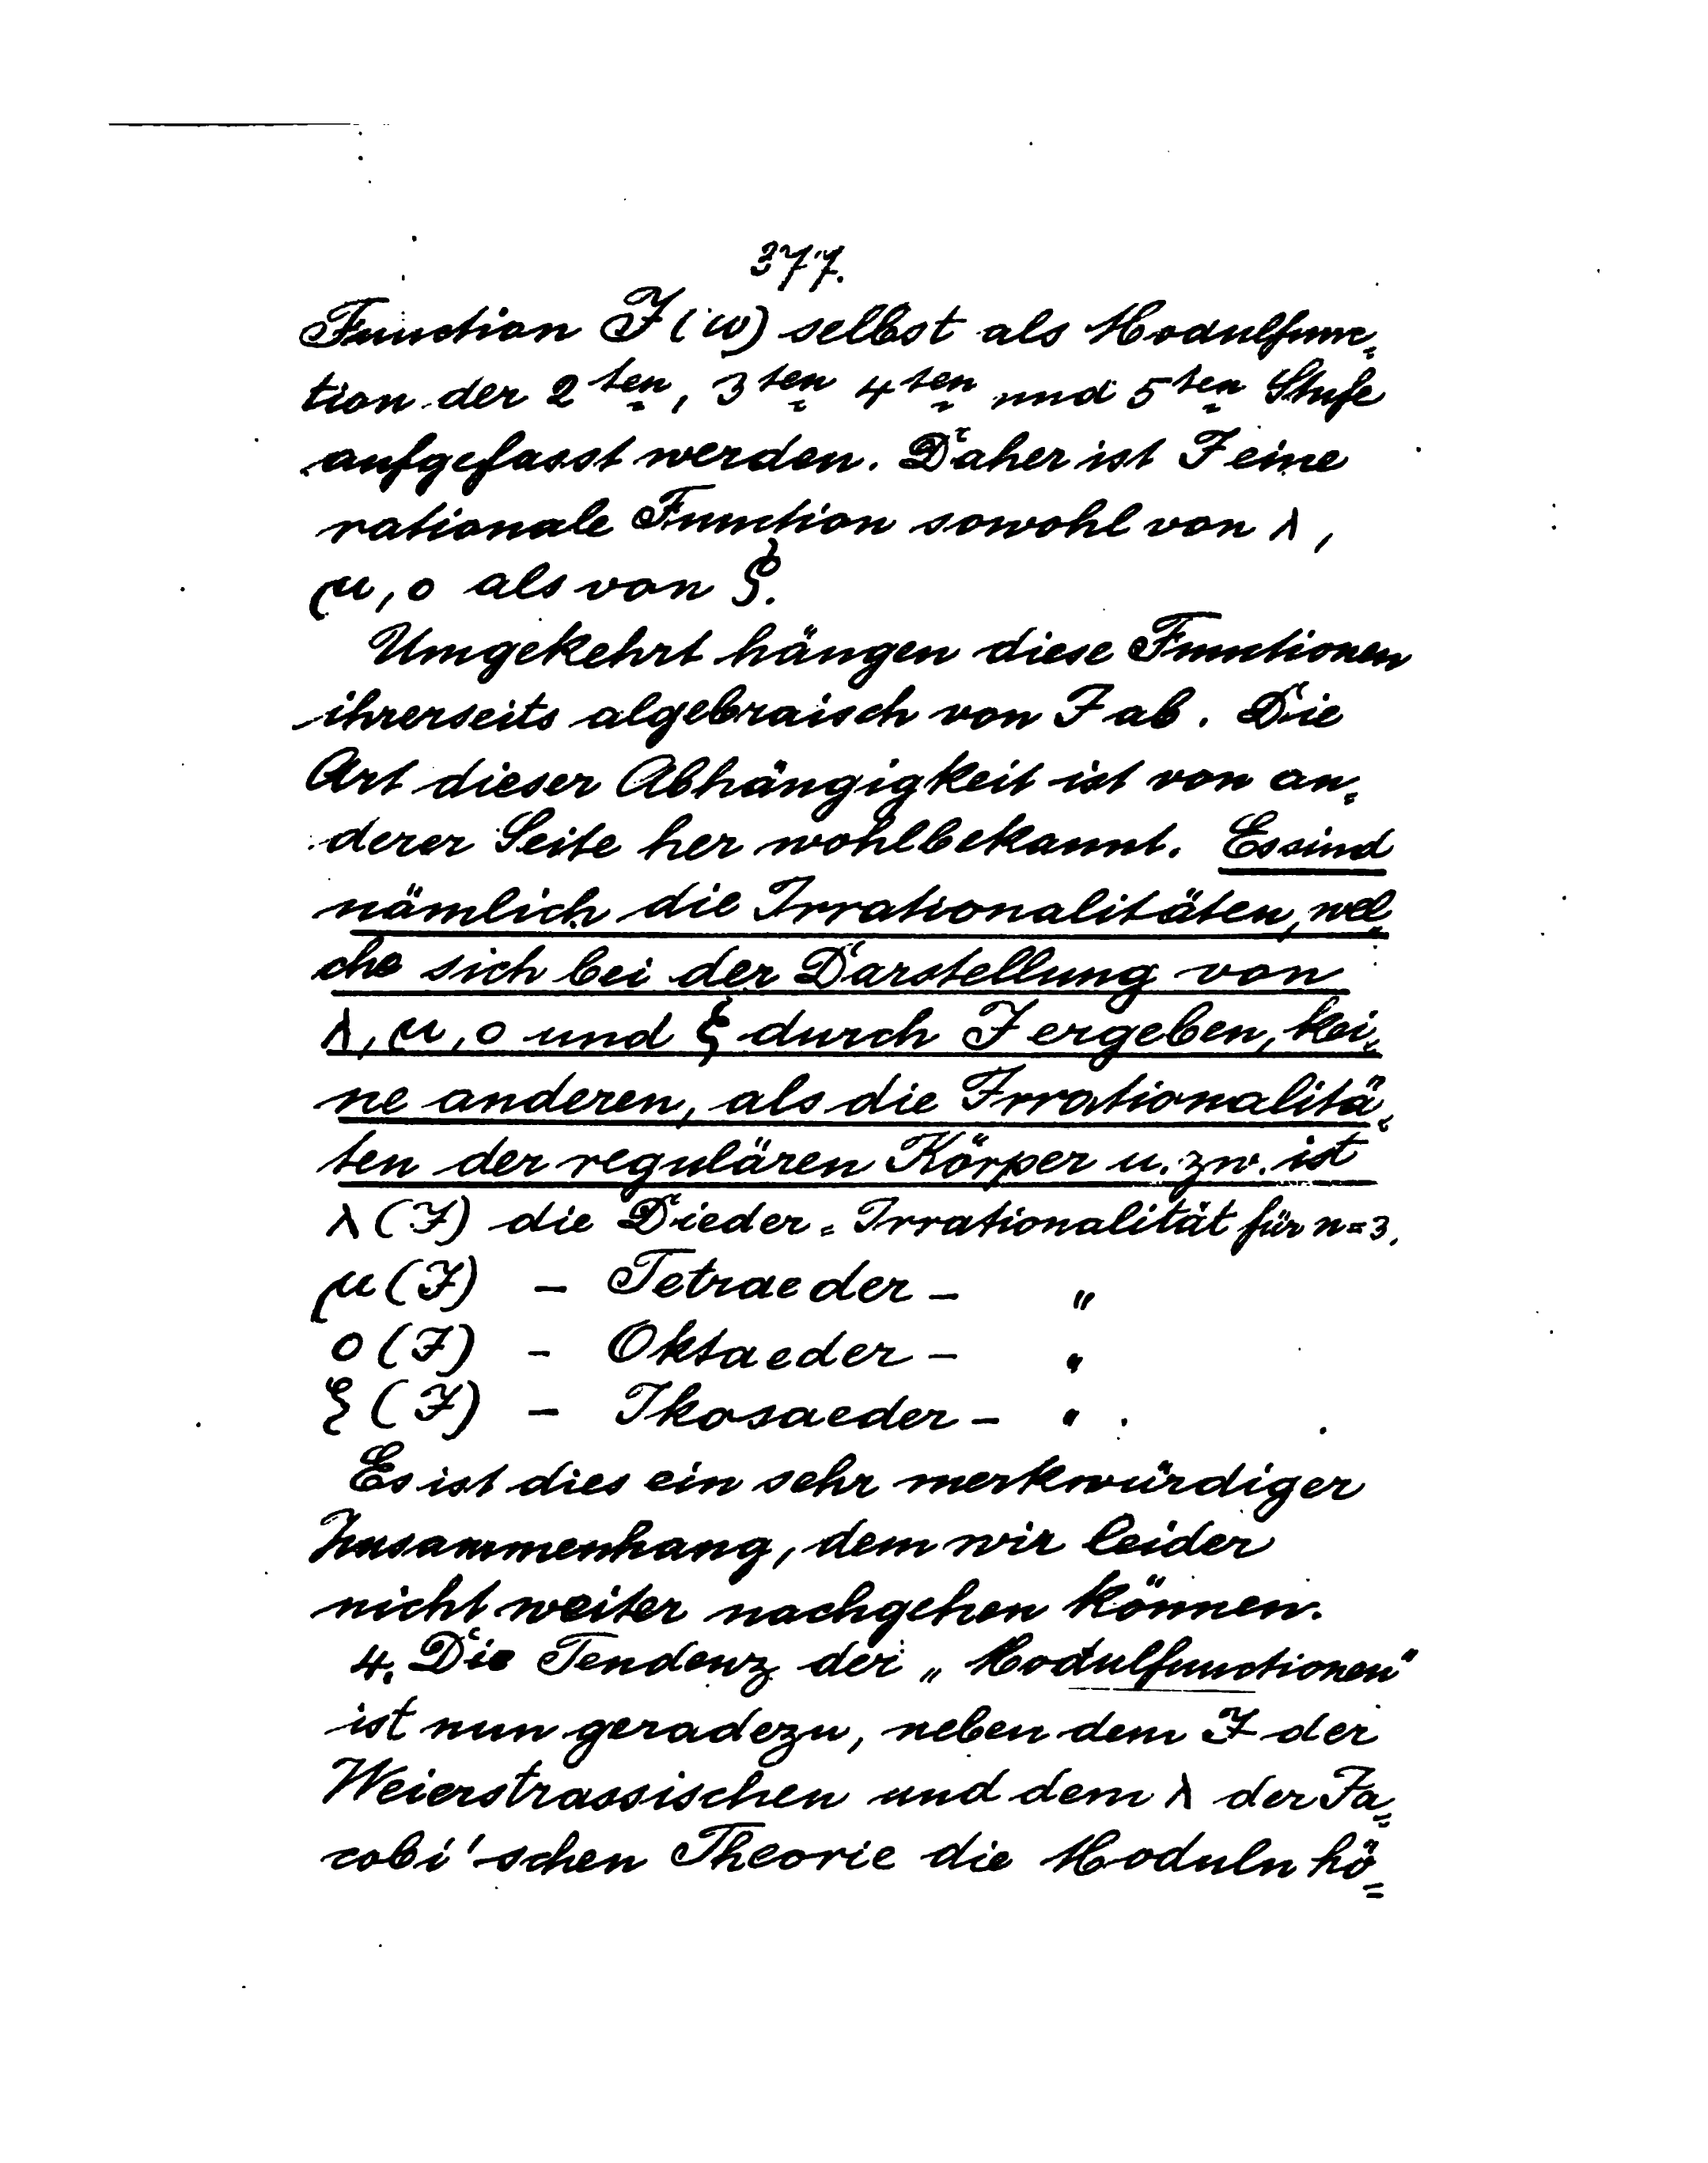 377.
Function J(ω) selbst als Modulfunc=
tion der 2ten, 3ten 4ten und 5ten Stufe
aufgefasst werden. Daher ist J eine
rationale Function sowohl von λ,
μ, o als von ξ.
Umgekehrt hängen diese Functionen
ihrerseits algebraisch von J ab. Die
Art dieser Abhängigkeit ist von an=
derer Seite her wohlbekannt. Es sind
nämlich die Irrationalitäten, wel=
che sich bei der Darstellung von
λ, μ, o und ξ durch J ergeben, kei=
ne anderen, als die Irrationalitä=
ten der regulären Körper u. zw. ist
λ(J) die Dieder=Irrationalität für n=3.
μ(J) – Tetraeder – "
o(J) – Oktaeder – "
ξ(J) – Ikosaeder – " .
Es ist dies ein sehr merkwürdiger
Zusammenhang, dem wir leider
nicht weiter nachgehen können.
4. Die Tendenz der „Modulfunctionen"
ist nun geradezu, neben dem J der
Weierstrassischen und dem λ der Ja=
cobi'schen Theorie die Moduln hö=